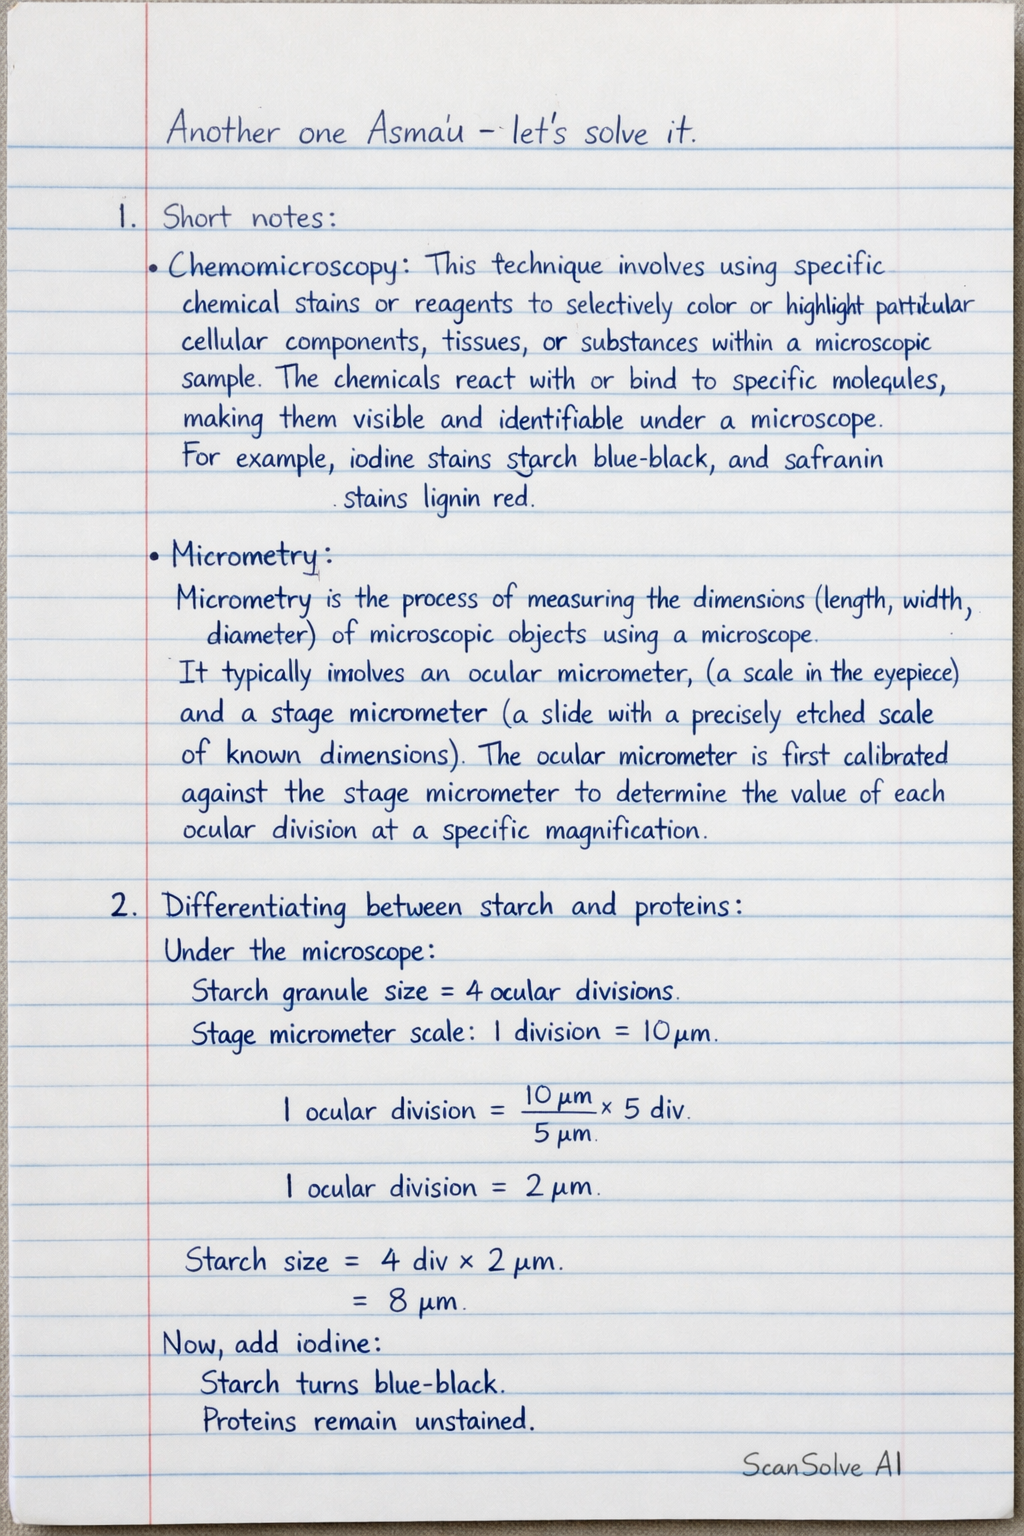 Another one Asma'u - let's solve it.
1. Short notes:
• Chemomicroscopy: This technique involves using specific
chemical stains or reagents to selectively color or highlight particular
cellular components, tissues, or substances within a microscopic
sample. The chemicals react with or bind to specific molequles,
making them visible and identifiable under a microscope.
For example, iodine stains starch blue-black, and safranin
. stains lignin red.
• Micrometry:
Micrometry is the process of measuring the dimensions (length, width,
diameter) of microscopic objects using a microscope.
It typically involves an ocular micrometer, (a scale in the eyepiece)
and a stage micrometer (a slide with a precisely etched scale
of known dimensions). The ocular micrometer is first calibrated
against the stage micrometer to determine the value of each
ocular division at a specific magnification.
2. Differentiating between starch and proteins:
Under the microscope:
Starch granule size = 4 ocular divisions.
Stage micrometer scale: 1 division = 10 μm.
1 ocular division = 10 μm / 5 μm. × 5 div.
1 ocular division = 2 μm.
Starch size = 4 div × 2 μm.
= 8 μm.
Now, add iodine:
Starch turns blue-black.
Proteins remain unstained.
ScanSolve AI